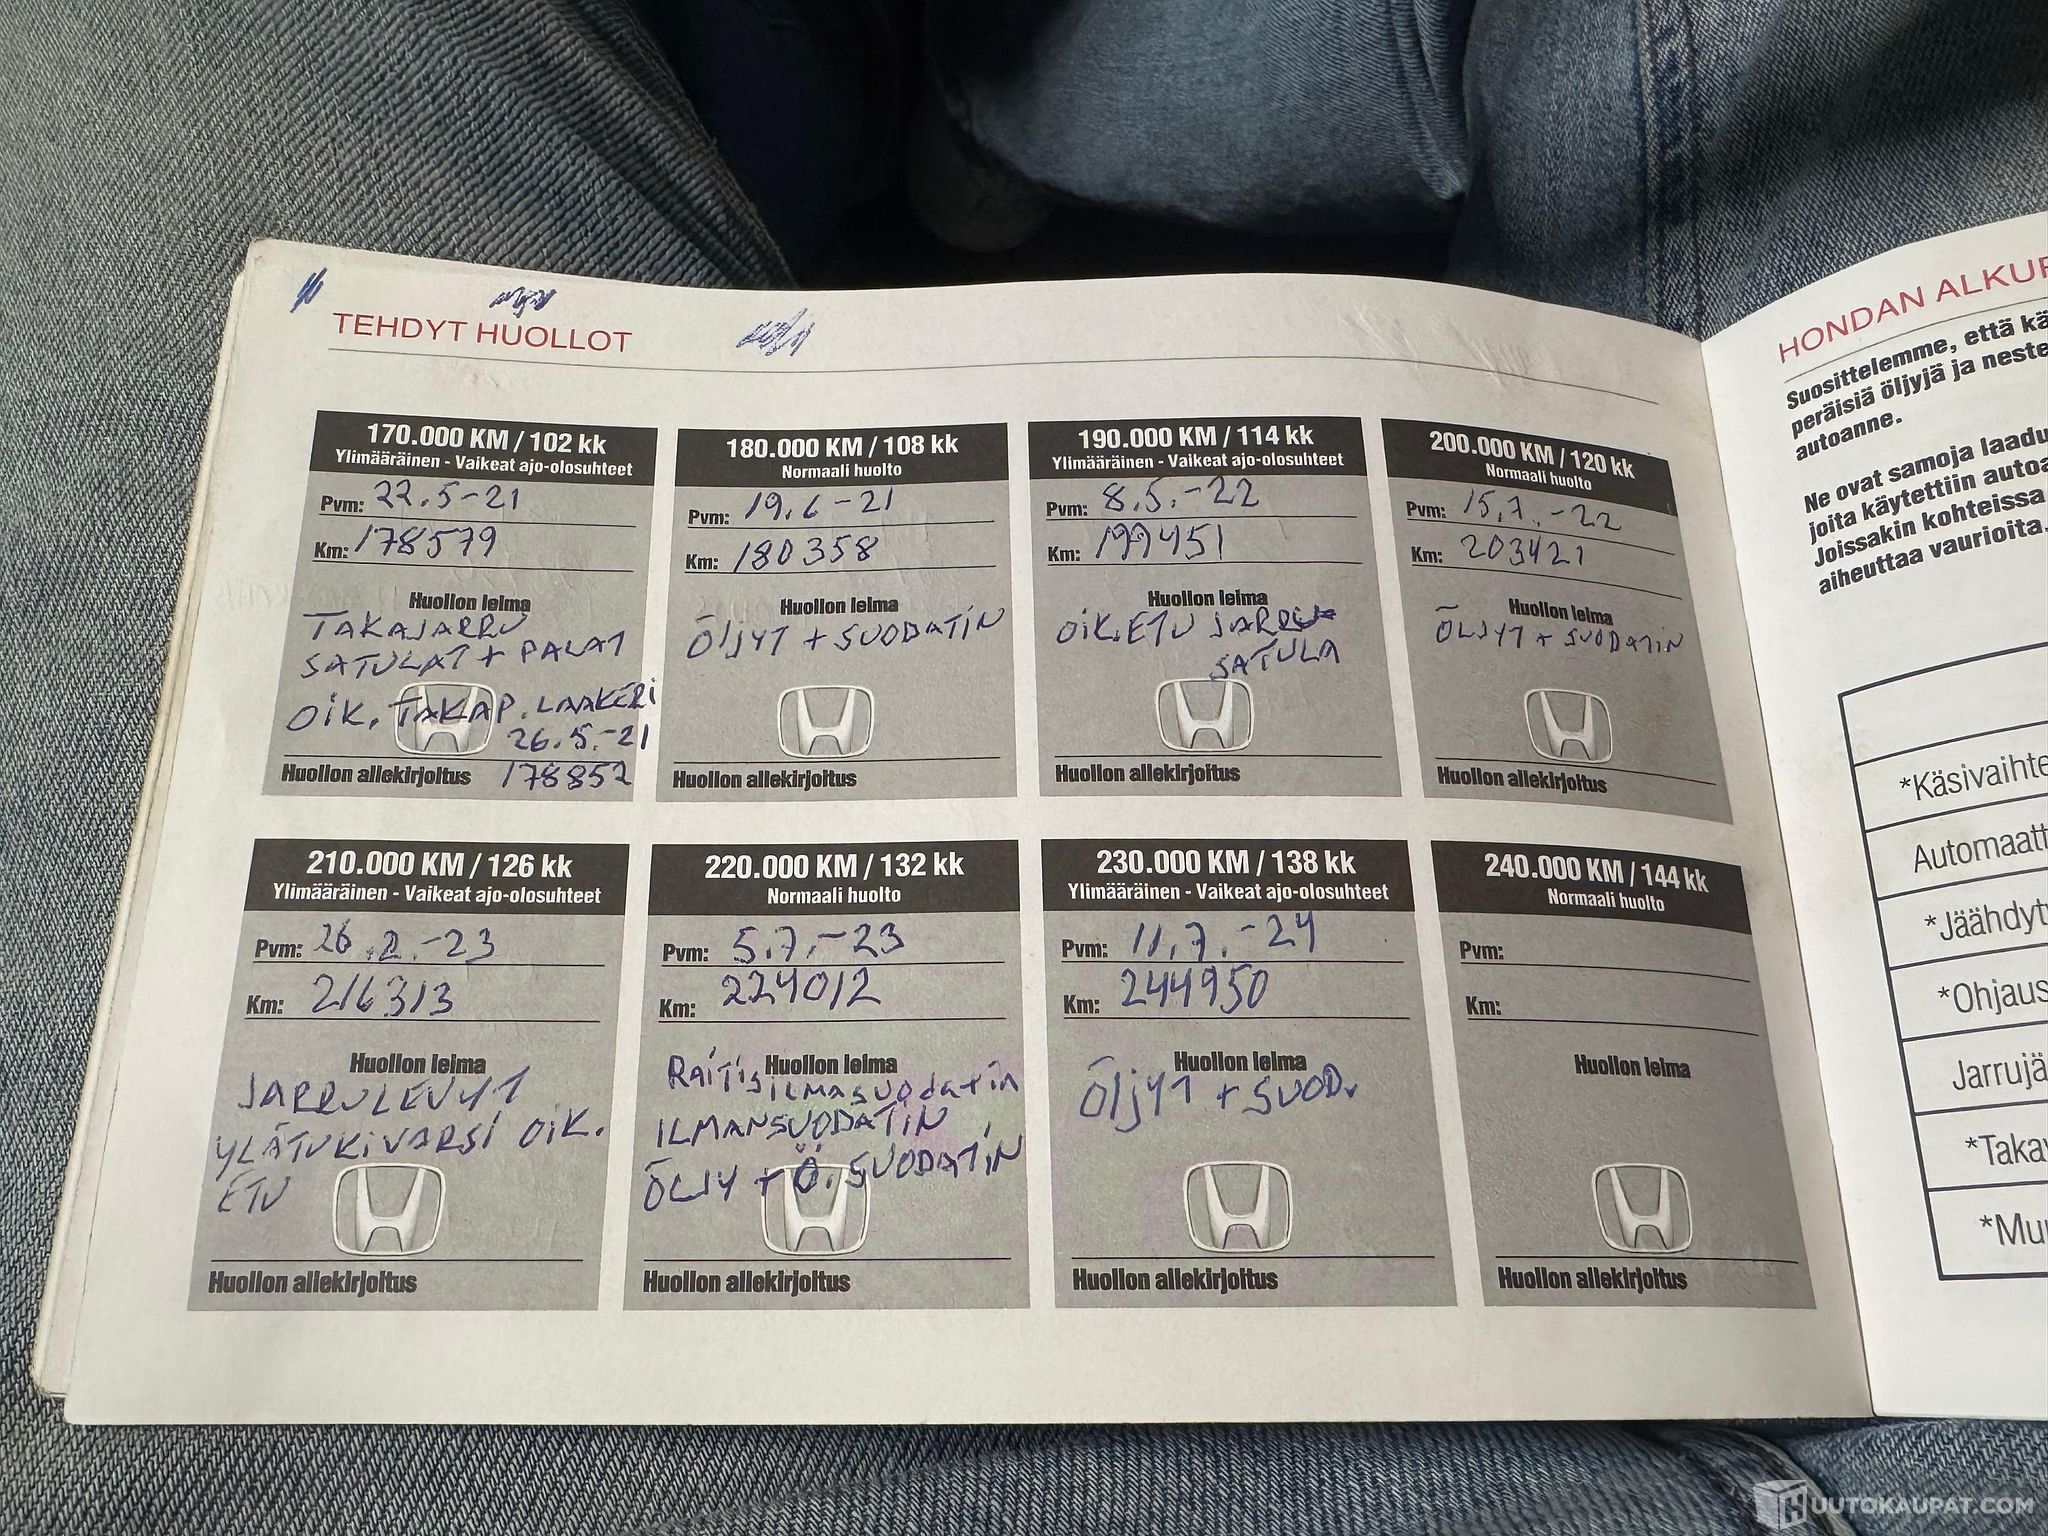 TEHDYT HUOLLOT
170.000 KM / 102 kk
Ylimääräinen - Vaikeat ajo-olosuhteet
Pvm: 22.5-21
Km: 178579
Huollon leima
TAKAJARRU
SATULAT + PALAT
OIK. TAKAP. LAAKERI
26.5.-21
Huollon allekirjoitus 178852
180.000 KM / 108 kk
Normaali huolto
Pvm: 19.6-21
Km: 180358
Huollon leima
ÖljyT + SUODATIN
Huollon allekirjoitus
190.000 KM / 114 kk
Ylimääräinen - Vaikeat ajo-olosuhteet
Pvm: 8.5.-22
Km: 199451
Huollon leima
OIK.ETU JARRU
SATULA
Huollon allekirjoitus
200.000 KM / 120 kk
Normaali huolto
Pvm: 15.7.-22
Km: 203421
Huollon leima
ÖLJYT + SUODATIN
Huollon allekirjoitus
210.000 KM / 126 kk
Ylimääräinen - Vaikeat ajo-olosuhteet
Pvm: 26.2.-23
Km: 216313
Huollon leima
JARRULEVYT
YLÄTUKIVARSI OIK.
ETU
Huollon allekirjoitus
220.000 KM / 132 kk
Normaali huolto
Pvm: 5.7.-23
Km: 224012
Huollon leima
RAITISILMASUOdATIN
ILMANSUODATIN
ÖLJY + Ö. SUODATIN
Huollon allekirjoitus
230.000 KM / 138 kk
Ylimääräinen - Vaikeat ajo-olosuhteet
Pvm: 11.7.-24
Km: 244950
Huollon leima
ÖljyT + SUOD.
Huollon allekirjoitus
240.000 KM / 144 kk
Normaali huolto
Pvm:
Km:
Huollon leima
Huollon allekirjoitus
HONDAN ALKUP
Suosittelemme, että kä
peräisiä öljyjä ja neste
autoanne.
Ne ovat samoja laadu
joita käytettiin autoa
Joissakin kohteissa
aiheuttaa vaurioita.
*Käsivaihte
Automaatt
*Jäähdyty
*Ohjaus
Jarrujä
*Taka
*Mu
HUUTOKAUPAT.COM